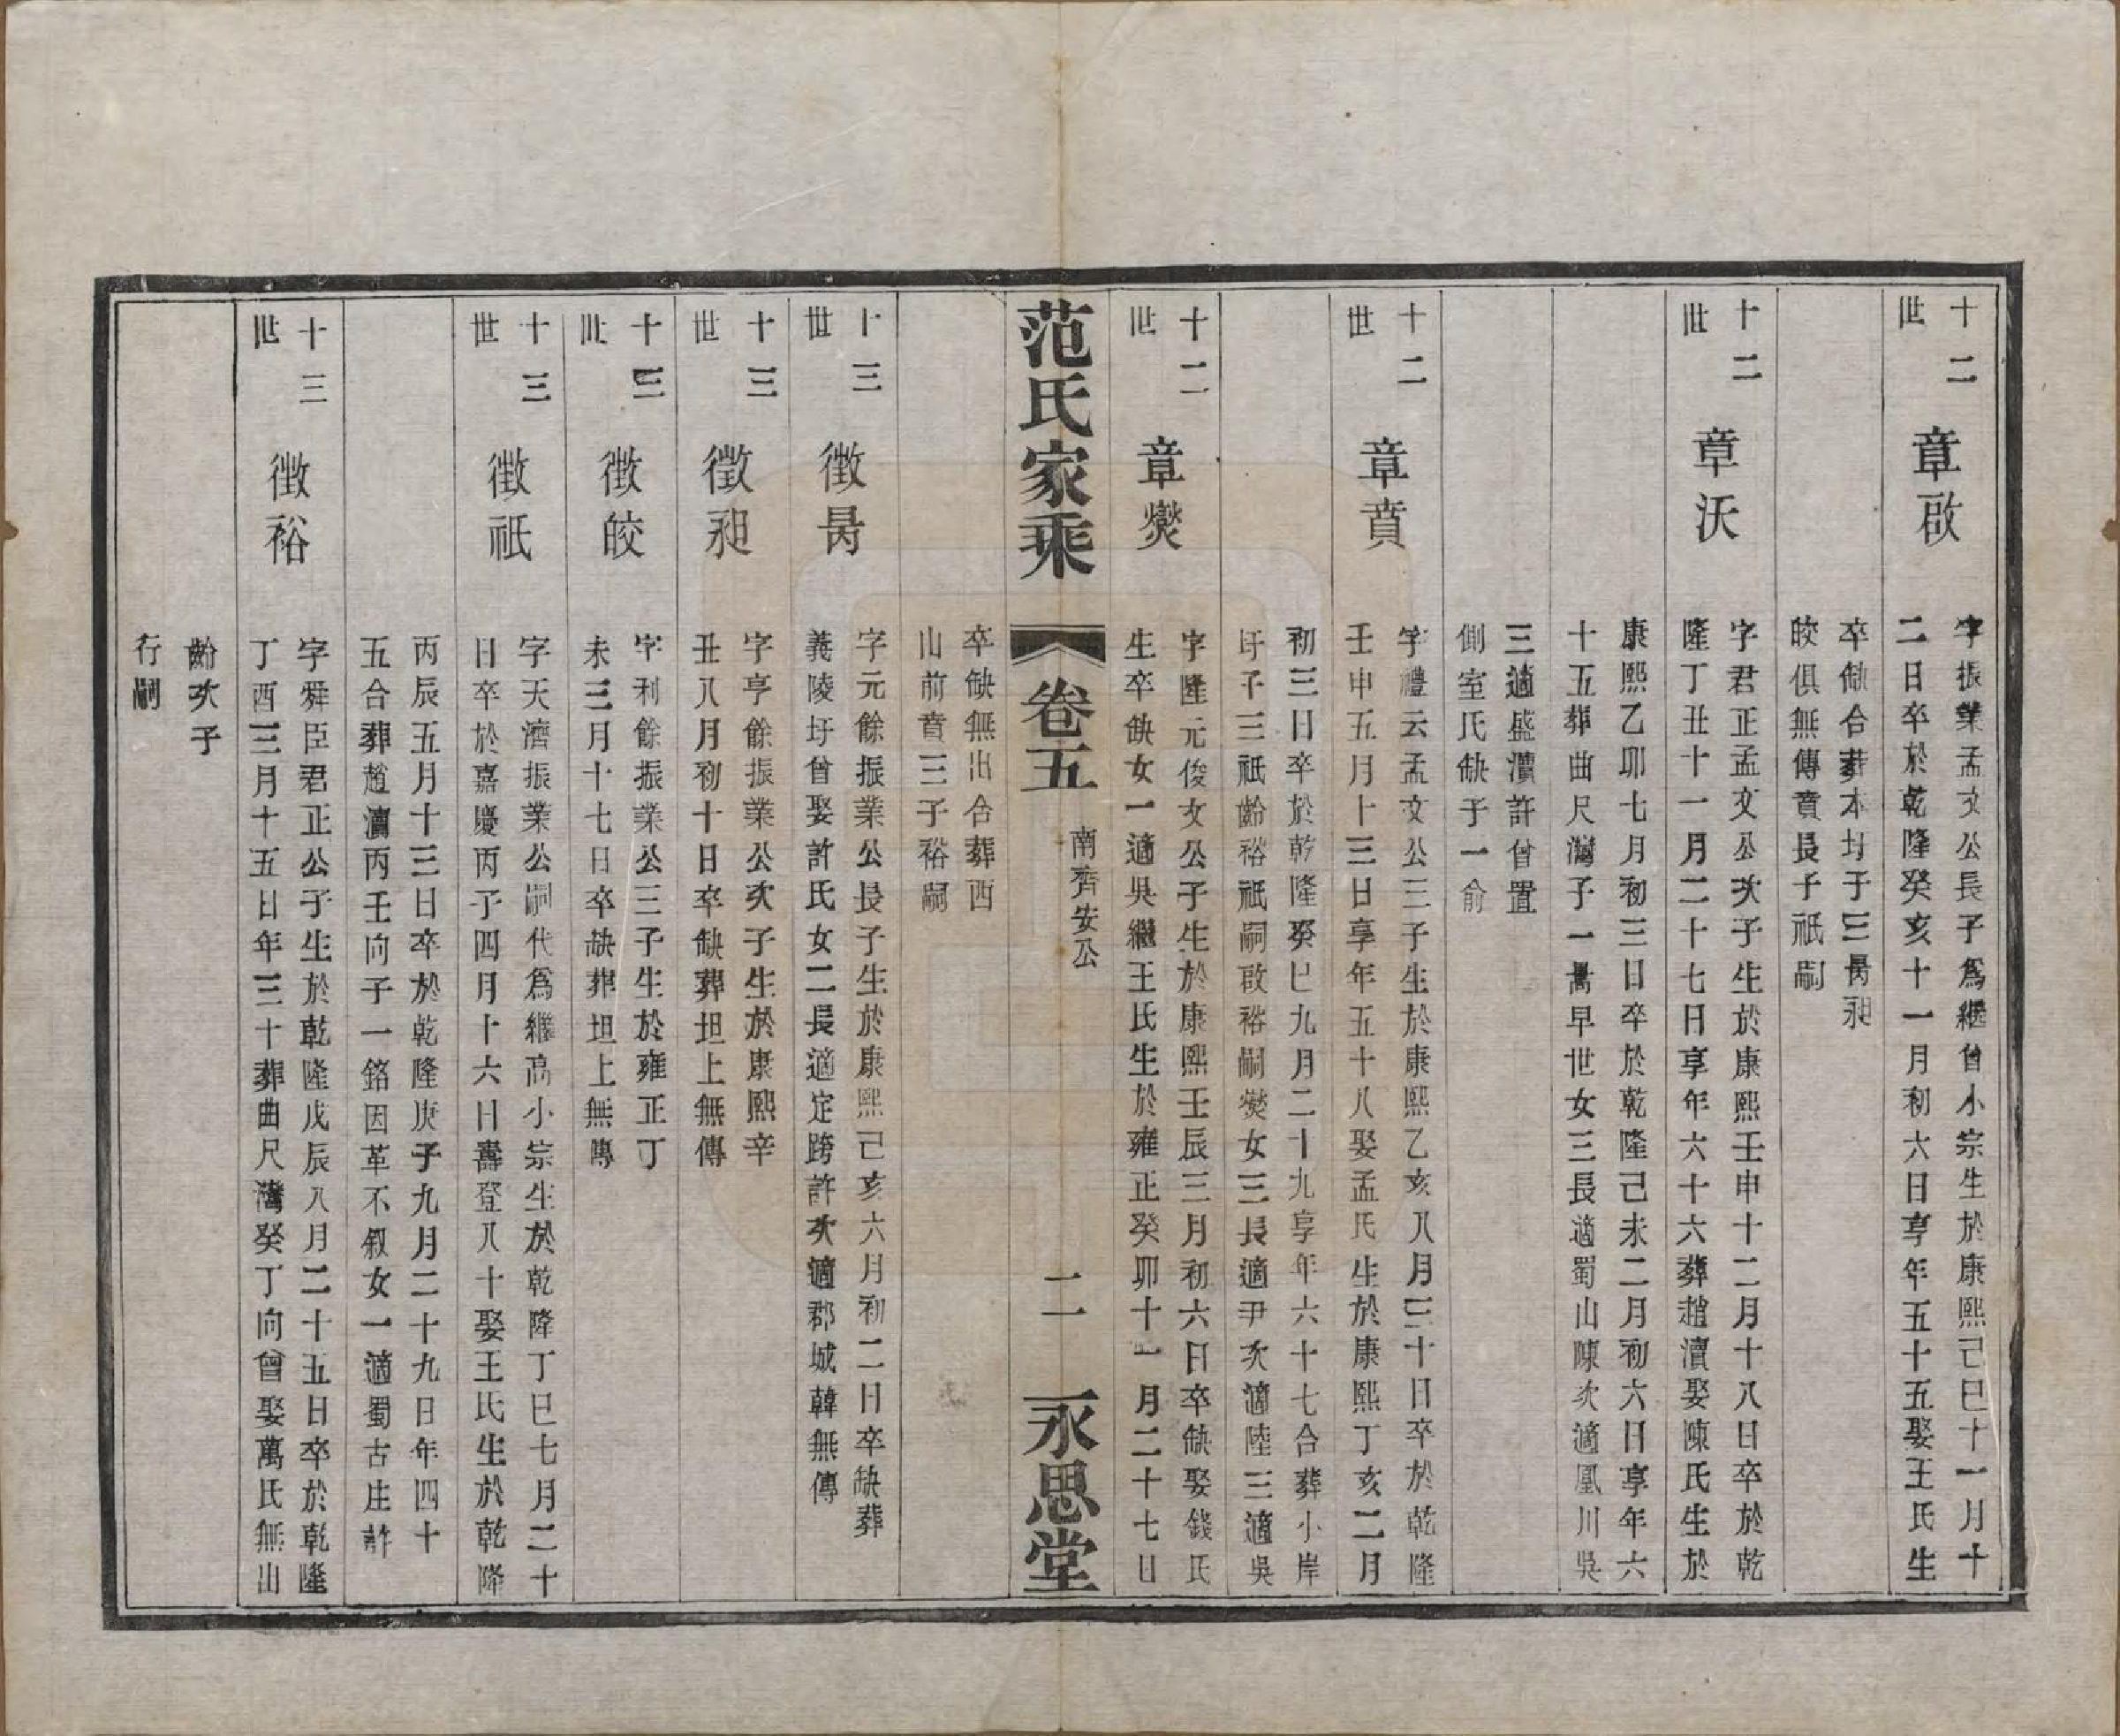 十二世
章啟
字振業孟文公長子為繼曾小宗生於康熙己巳十一月十
二日卒於乾隆癸亥十一月初六日享年五十五娶王氏生
卒缺合葬本圩子三昺昶
皎俱無傳賁長子祇嗣
十二世
章沃
字君正孟文公次子生於康熙壬申十二月十八日卒於乾
隆丁丑十一月二十七日享年六十六葬趙瀆娶陳氏生於
康熙乙卯七月初三日卒於乾隆己未二月初六日享年六
十五葬曲尺灣子一暠早世女三長適蜀山陳次適凰川吳
三適盛瀆許曾置
側室氏缺子一俞
十二世
章賁
字禮云孟文公三子生於康熙乙亥八月三十日卒於乾隆
壬申五月十三日享年五十八娶孟氏生於康熙丁亥二月
初三日卒於乾隆癸巳九月二十九享年六十七合葬小岸
圩子三祇齡裕祇嗣啟裕嗣爕女三長適尹次適陸三適吳
十二世
章爕
字隆元俊文公子生於康熙壬辰三月初六日卒缺娶錢氏
生卒缺女一適吳繼王氏生於雍正癸卯十一月二十七日
范氏家乘
卷五
南齊安公
二
永思堂
卒缺無出合葬西
山前賁三子裕嗣
十三世
徵昺
字元餘振業公長子生於康熙己亥六月初二日卒缺葬
義陵圩曾娶許氏女二長適定跨許次適郡城韓無傳
十三世
徵昶
字亨餘振業公次子生於康熙辛
丑八月初十日卒缺葬坦上無傳
十三世
徵皎
字利餘振業公三子生於雍正丁
未三月十七日卒缺葬坦上無傳
十三世
徵祇
字天濟振業公嗣代為繼高小宗生於乾隆丁巳七月二十
日卒於嘉慶丙子四月十六日壽登八十娶王氏生於乾隆
丙辰五月十三日卒於乾隆庚子九月二十九日年四十
五合葬趙瀆丙壬向子一銘因革不叙女一適蜀古庄許
十三世
徵裕
字舜臣君正公子生於乾隆戊辰八月二十五日卒於乾隆
丁酉三月十五日年三十葬曲尺灣癸丁向曾娶萬氏無出
齡次子
行嗣